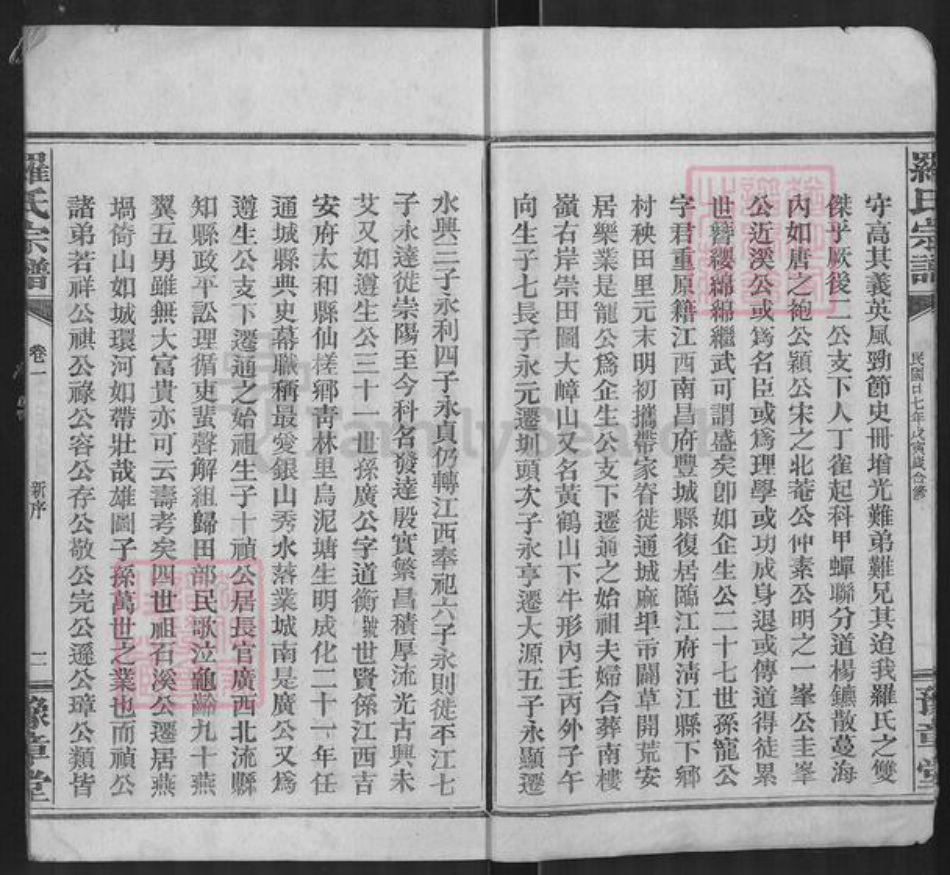 羅氏宗譜
民國廿七年戊寅歲合修
豫章堂
守高其義英風勁節史冊增光難弟難兄其迨我羅氏之雙
傑乎厥後二公支下人丁雀起科甲蟬聯分道楊鑣散蔓海
內如唐之袍公穎公宋之北菴公仲素公明之一峯公圭峯
公近溪公或爲名臣或爲理學或功成身退或傳道得徒累
世簪纓綿綿繼武可謂盛矣卽如企生公二十七世孫龍公
字君重原籍江西南昌府豐城縣復居臨江府淸江縣下鄉
村秧田里元末明初攜帶家眷徙通城麻埠市闢草開荒安
居樂業是龍公爲企生公支下遷通之始祖夫婦合葬南樓
嶺右岸崇田圖大嶂山又名黃鶴山下牛形內壬丙外子午
向生子七長子永元遷圳頭次子永亨遷大源五子永顯遷
水興三子永利四子永貞仍轉江西奉祀六子永則徙平江七
子永達徙崇陽至今科名發達殷實繁昌積厚流光古興未
艾又如遵生公三十一世孫廣公字道衡號世賢係江西吉
安府太和縣仙槎鄉靑林里烏泥塘生明成化二十一年任
通城縣典史幕職稱最愛銀山秀水落業城南是廣公又爲
遵生公支下遷通之始祖生子十禎公居長官廣西北流縣
知縣政平訟理循吏蜚聲解組歸田部民歌泣龜齡九十燕
翼五男雖無大富貴亦可云壽考矣四世祖石溪公遷居燕
塥倚山如城環河如帶壯哉雄圖子孫萬世之業也而禎公
諸弟若祥公祺公祿公容公存公敬公完公遜公璋公類皆
羅氏宗譜
卷一
新序
二
豫章堂
FamilySearch